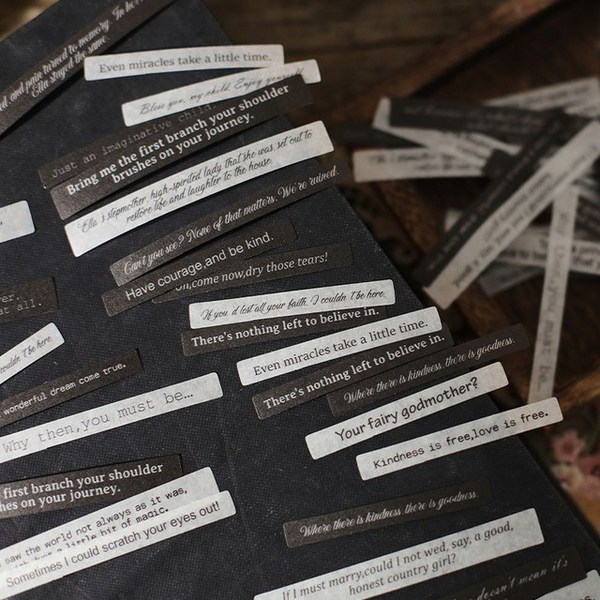 and pain turned to memory. In
Ella stayed the same
Even miracles take a little time.
Bless you, my child. Enjoy yourself
Just an imaginative child.
Bring me the first branch your shoulder
brushes on your journey.
Ella's stepmother, high-spirited lady that she was, set out to
restore life and laughter to the house.
Can't you see? None of that matters. We're ruined.
Have courage,and be kind.
come now,dry those tears!
If you'd lost all your faith, I couldn't be here.
There's nothing left to believe in.
Even miracles take a little time.
There's nothing left to believe in.
Where there is kindness, there is goodness.
Your fairy godmother?
Kindness is free,love is free.
at all.
couldn't be here.
wonderful dream come true.
Why then,you must be...
first branch your shoulder
hes on your journey.
saw the world not always as it was,
a little bit of magic.
Sometimes I could scratch your eyes out!
Where there is kindness, there is goodness.
If I must marry,could I not wed, say, a good,
honest country girl?
doesn't mean it's
you must be